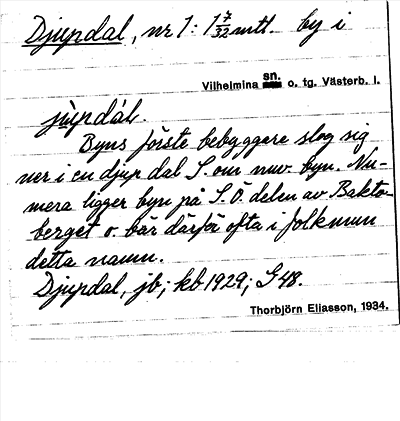 Djupdal, nr 1: 1 7/32 mtl. by i
Vilhelmina sn. o. tg. Västerb. l.
jùpdál.
Byns förste bebyggare slog sig
ner i en djup dal S. om nuv. byn. Nu-
mera ligger byn på S.Ö. delen av Bakto-
berget o. bär därför ofta i folkmun
detta namn.
Djupdal, jb; kb 1929; S 48.
Thorbjörn Eliasson, 1934.